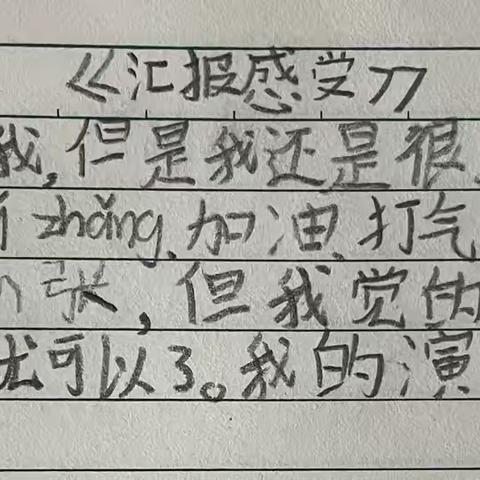 《汇报感受》
我,但是我还是很
zhǎng、加油、打气
张,但我觉的
尤可以了。我的演